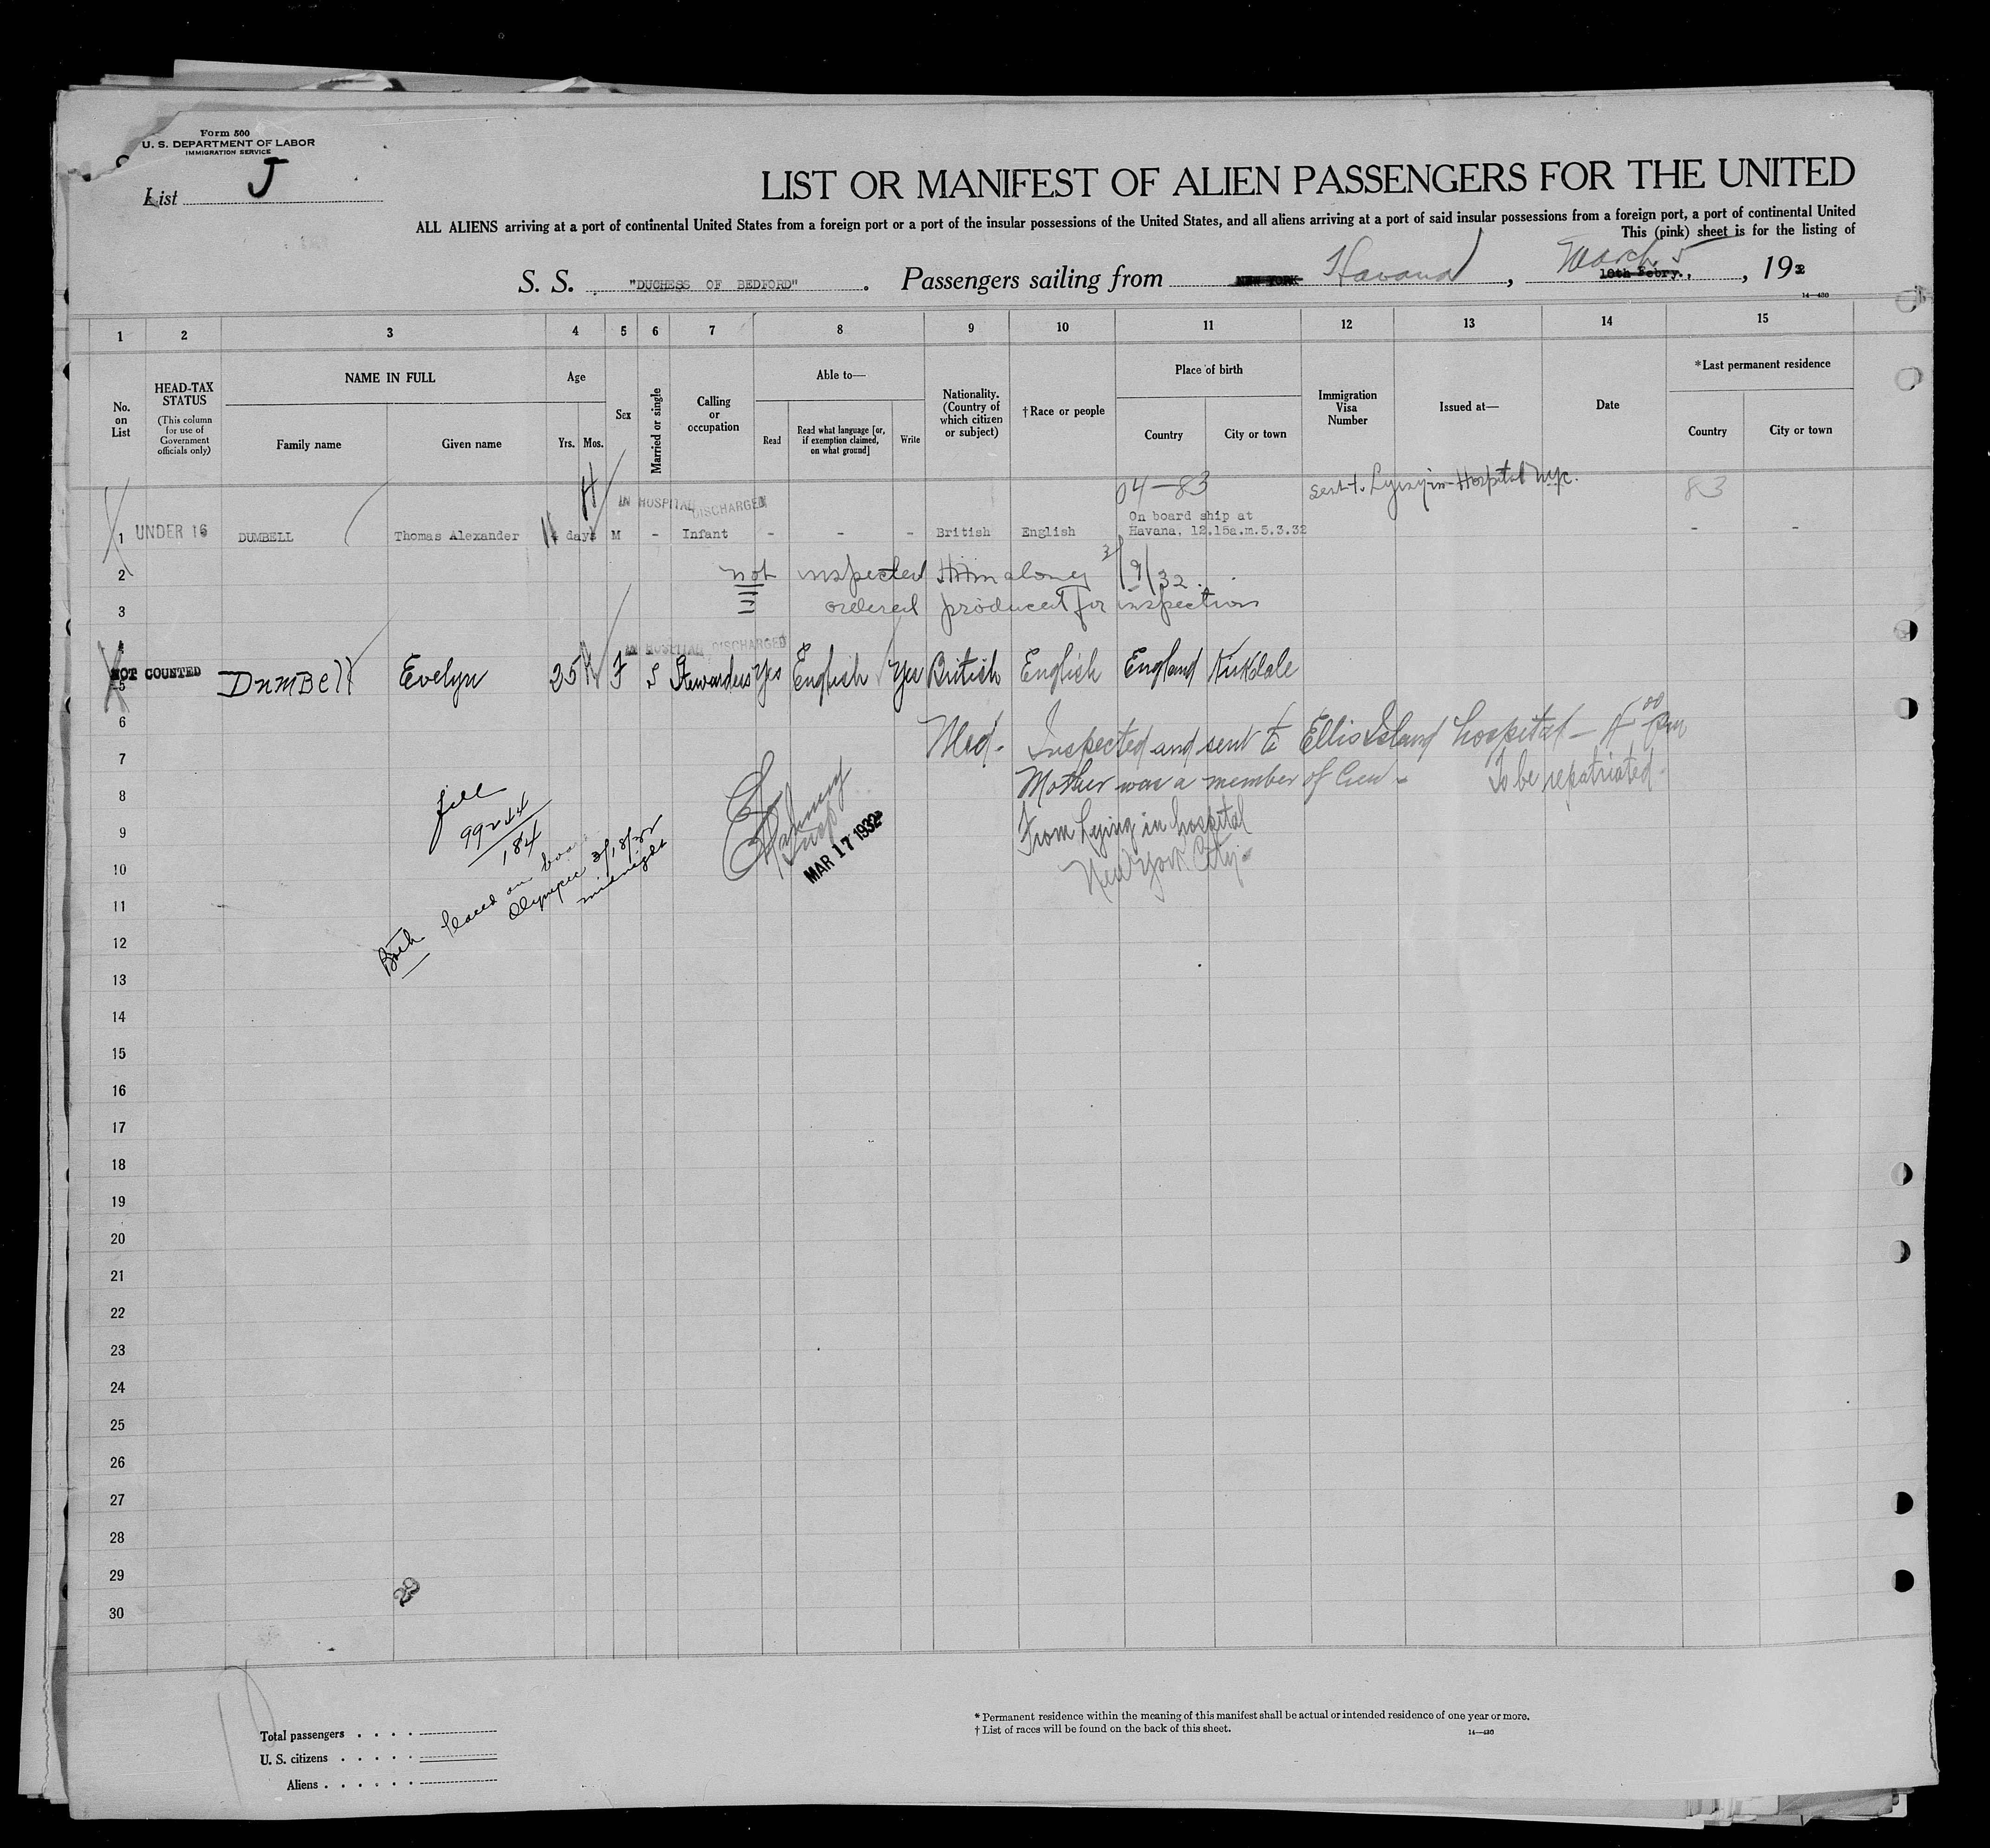 Form 500
U. S. DEPARTMENT OF LABOR
IMMIGRATION SERVICE
List J
LIST OR MANIFEST OF ALIEN PASSENGERS FOR THE UNITED
ALL ALIENS arriving at a port of continental United States from a foreign port or a port of the insular possessions of the United States, and all aliens arriving at a port of said insular possessions from a foreign port, a port of continental United
This (pink) sheet is for the listing of
S. S. "DUCHESS OF BEDFORD". Passengers sailing from NEW YORK Havana, March 5 10th Febry., 192
14—430
1 2 3 4 5 6 7 8 9 10 11 12 13 14 15
No. on List
HEAD-TAX STATUS
(This column for use of Government officials only)
NAME IN FULL
Family name
Given name
Age
Yrs. Mos.
Sex
Married or single
Calling or occupation
Able to—
Read
Read what language [or, if exemption claimed, on what ground]
Write
Nationality. (Country of which citizen or subject)
†Race or people
Place of birth
Country
City or town
Immigration Visa Number
Issued at—
Date
*Last permanent residence
Country
City or town
H IN HOSPITAL DISCHARGED 04-83 sent to Lying-in-Hospital N.Y.C. 83
1 UNDER 16 DUMBELL Thomas Alexander days M - Infant - - - British English On board ship at Havana, 12.15a.m.5.3.32 - -
2 not inspected 3/9/32
3 ordered produced for inspection
4 IN HOSPITAL DISCHARGED
5 NOT COUNTED DumBell Evelyn 35 F S Stewardess Yes English Yes British English England Kirkdale
6 Med. Inspected and sent to Ellis Island hospital - 4 00 pm
7 Mother was a member of Crew - To be repatriated.
8 From Lying in hospital
9 New York City-
file
99244
184
Both placed on board
Olympic 3/18/32
midnight
Insp
MAR 17 1932
10
11
12
13
14
15
16
17
18
19
20
21
22
23
24
25
26
27
28
29
30
29
Total passengers . . . .
U. S. citizens . . . . .
Aliens . . . . . .
* Permanent residence within the meaning of this manifest shall be actual or intended residence of one year or more.
† List of races will be found on the back of this sheet.
14—430